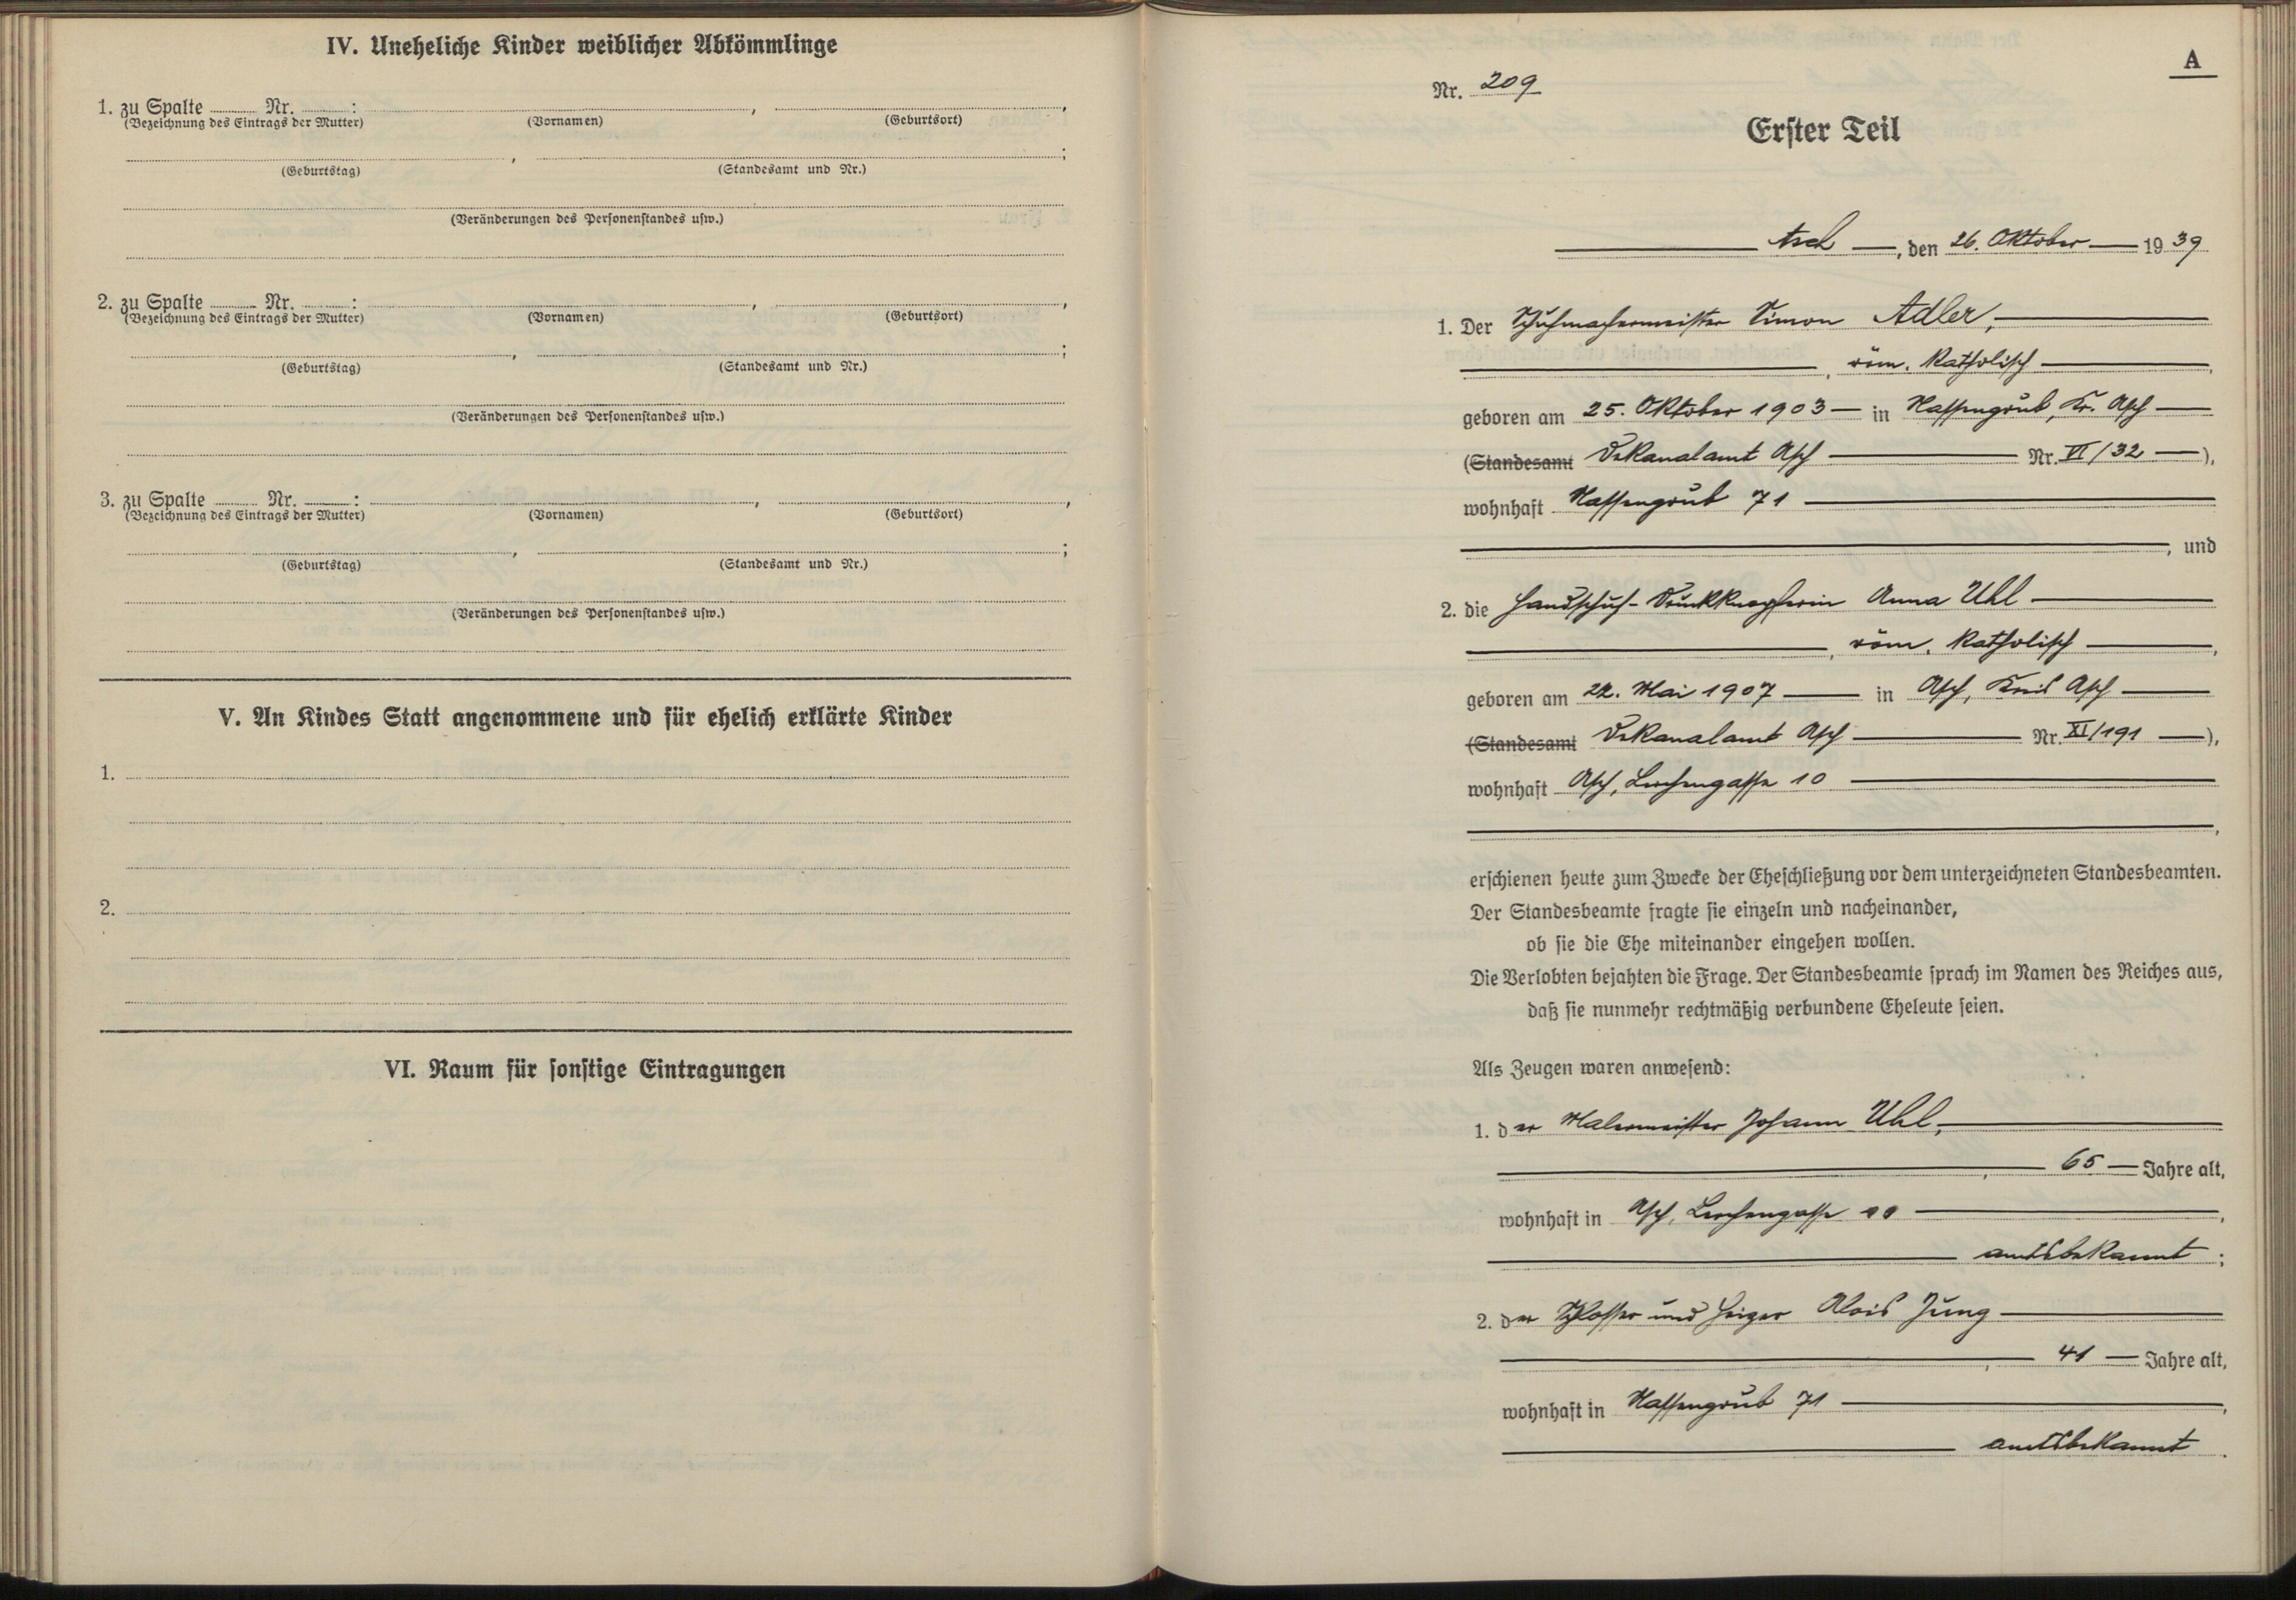 IV. Uneheliche Kinder weiblicher Abkömmlinge
1. zu Spalte ........ Nr. ........ : ........ , ........ ,
(Bezeichnung des Eintrags der Mutter) (Vornamen) (Geburtsort)
........ , ........ ;
(Geburtstag) (Standesamt und Nr.)
(Veränderungen des Personenstandes usw.)
2. zu Spalte ........ Nr. ........ : ........ , ........ ,
(Bezeichnung des Eintrags der Mutter) (Vornamen) (Geburtsort)
........ , ........ ;
(Geburtstag) (Standesamt und Nr.)
(Veränderungen des Personenstandes usw.)
3. zu Spalte ........ Nr. ........ : ........ , ........ ,
(Bezeichnung des Eintrags der Mutter) (Vornamen) (Geburtsort)
........ , ........ ;
(Geburtstag) (Standesamt und Nr.)
(Veränderungen des Personenstandes usw.)
V. An Kindes Statt angenommene und für ehelich erklärte Kinder
1.
2.
VI. Raum für sonstige Eintragungen
A
Nr. 209
Erster Teil
Asch, den 26. Oktober 1939
1. Der Schuhmachermeister Simon Adler,
, röm. katholisch ,
geboren am 25. Oktober 1903 in Nassengrub, Kr. Asch
(Standesamt Dekanalamt Asch Nr. VI/32 ),
wohnhaft Nassengrub 71
, und
2. die Handschuh-Druckknopferin Anna Uhl
, röm. katholisch ,
geboren am 22. Mai 1907 in Asch, Kreis Asch
(Standesamt Dekanalamt Asch Nr. XI/191 ),
wohnhaft Asch, Lerchengasse 10
,
erschienen heute zum Zwecke der Eheschließung vor dem unterzeichneten Standesbeamten.
Der Standesbeamte fragte sie einzeln und nacheinander,
ob sie die Ehe miteinander eingehen wollen.
Die Verlobten bejahten die Frage. Der Standesbeamte sprach im Namen des Reiches aus,
daß sie nunmehr rechtmäßig verbundene Eheleute seien.
Als Zeugen waren anwesend:
1. der Malermeister Johann Uhl,
, 65 Jahre alt,
wohnhaft in Asch, Lerchengasse 10 ,
amtsbekannt ;
2. der Schlosser und Heizer Alois Jung
, 41 Jahre alt,
wohnhaft in Nassengrub 71 ,
amtsbekannt .